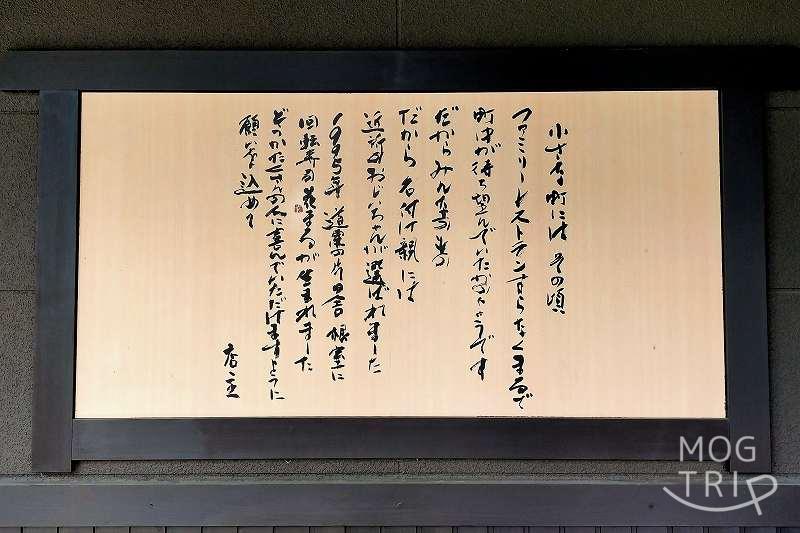 小さな町には その頃
ファミリーレストランすらなくまるで
町中が待ち望んでいたかのようです
だからみんな
だから 名付け親には
近所のおじいちゃんが選ばれました
年 道東の片田舎 根室に
回転寿司 花まるが生まれました
どうかたくさんの人に喜んでいただけますように
願いを込めて
店主
MOG
TRIP